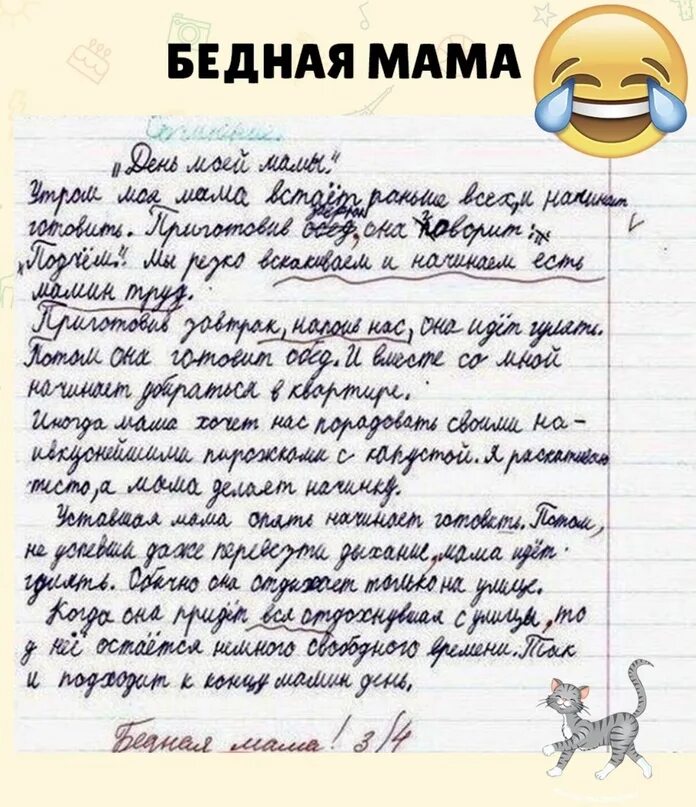 БЕДНАЯ МАМА
Сочинение.
„День моей мамы."
Утром моя мама встаёт раньше всех, и начинает
готовить. Приготовив обед, она говорит:
„Подъём". Мы резко вскакиваем и начинаем есть
мамин труд.
Приготовив завтрак, напоив нас, она идёт гулять.
Потом она готовит обед. И вместе со мной
начинает убираться в квартире.
Иногда мама хочет нас порадовать своими на-
ивкуснейшими пирожками с капустой. Я раскатываю
тесто, а мама делает начинку.
Уставшая мама опять начинает готовить. Потом,
не успевши даже перевезти дыхание, мама идёт
гулять. Обычно она отдыхает только на улице.
Когда она придёт вся отдохнувшая с улицы, то
у неё остаётся немного свободного времени. Так
и подходит к концу мамин день.
Бедная мама! 3/4